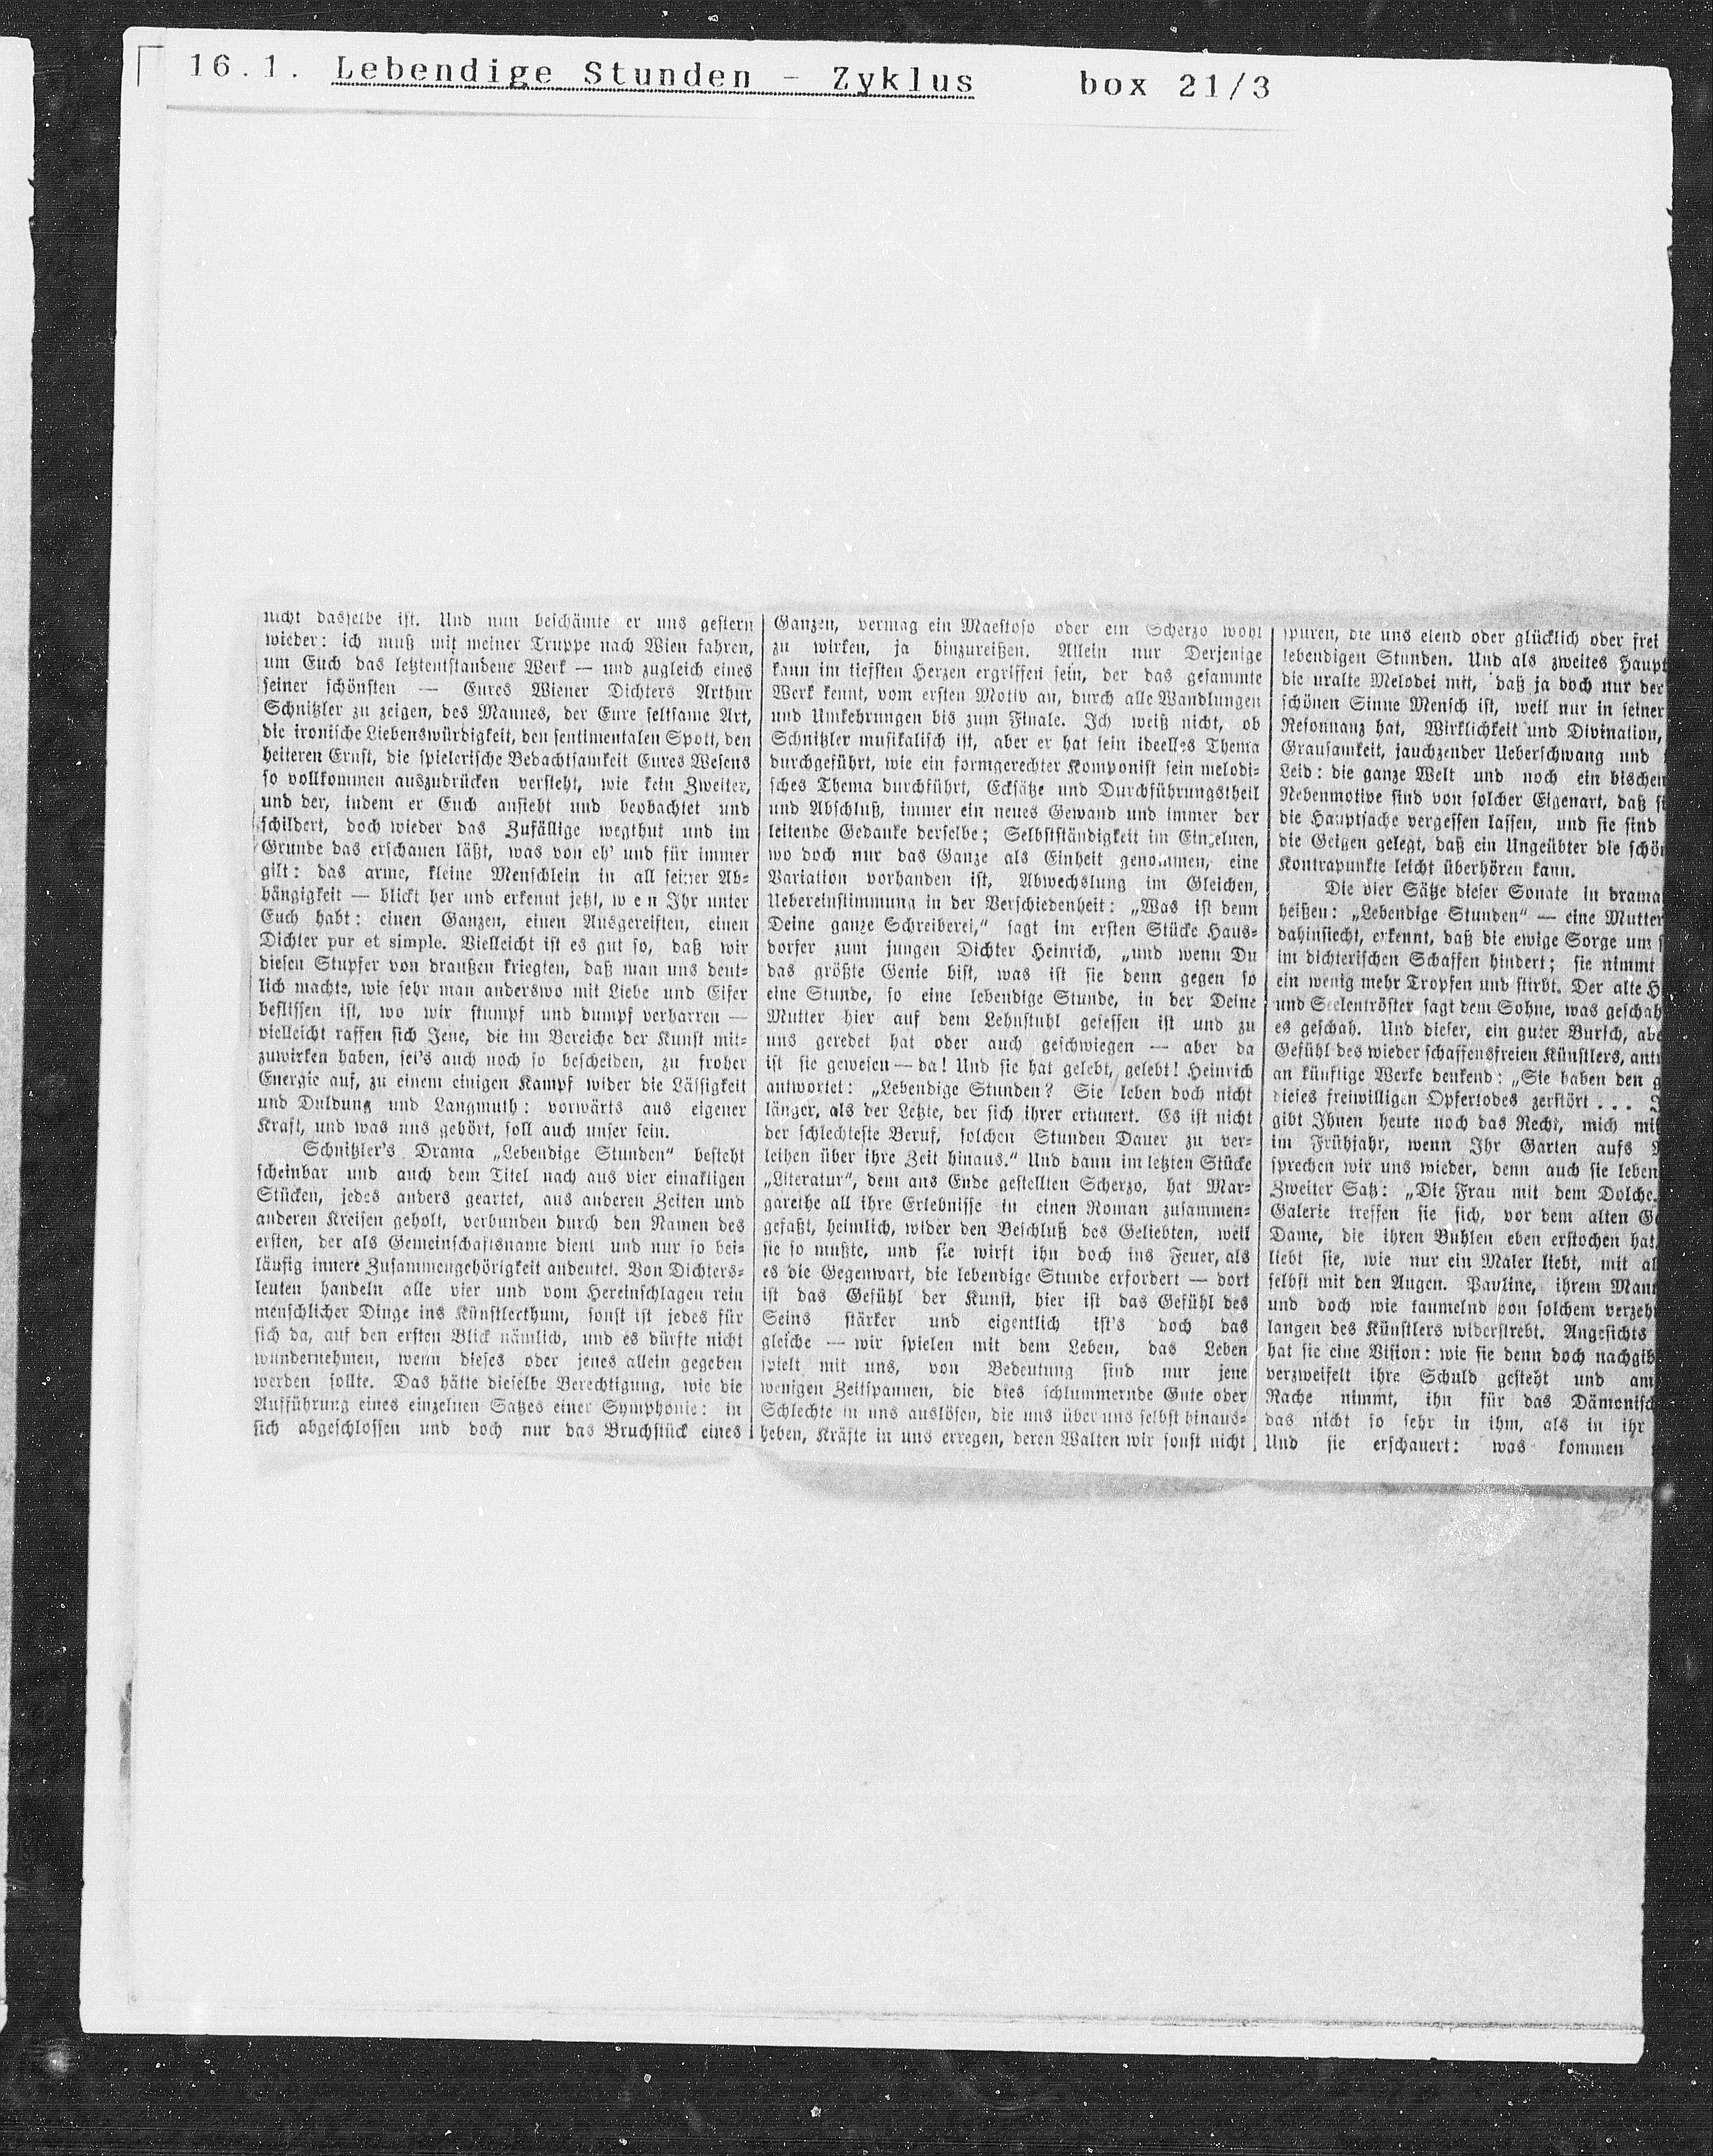 16.1. Lebendige Stunden - Zyklus box 21/3
nicht dasselbe ist. Und nun beschämte er uns gestern
wieder: ich muß mit meiner Truppe nach Wien fahren,
um Euch das letztentstandene Werk — und zugleich eines
seiner schönsten — Eures Wiener Dichters Arthur
Schnitzler zu zeigen, des Mannes, der Eure seltsame Art,
die ironische Liebenswürdigkeit, den sentimentalen Spott, den
heiteren Ernst, die spielerische Bedachtsamkeit Eures Wesens
so vollkommen auszudrücken versteht, wie kein Zweiter,
und der, indem er Euch ansieht und beobachtet und
schildert, doch wieder das Zufällige wegthut und im
Grunde das erschauen läßt, was von eh' und für immer
gilt: das arme, kleine Menschlein in all seiner Ab-
hängigkeit — blickt her und erkennt jetzt, wen Ihr unter
Euch habt: einen Ganzen, einen Ausgereiften, einen
Dichter pur et simple. Vielleicht ist es gut so, daß wir
diesen Stupfer von draußen kriegten, daß man uns deut-
lich machte, wie sehr man anderswo mit Liebe und Eifer
beflissen ist, wo wir stumpf und dumpf verharren —
vielleicht raffen sich Jene, die im Bereiche der Kunst mit-
zuwirken haben, sei's auch noch so bescheiden, zu froher
Energie auf, zu einem einigen Kampf wider die Lässigkeit
und Duldung und Langmuth: vorwärts aus eigener
Kraft, und was uns gehört, soll auch unser sein.
Schnitzler's Drama „Lebendige Stunden“ besteht
scheinbar und auch dem Titel nach aus vier einaktigen
Stücken, jedes anders geartet, aus anderen Zeiten und
anderen Kreisen geholt, verbunden durch den Namen des
ersten, der als Gemeinschaftsname dient und nur so bei-
läufig innere Zusammengehörigkeit andeutet. Von Dichters-
leuten handeln alle vier und vom Hereinschlagen rein
menschlicher Dinge ins Künstlerthum, sonst ist jedes für
sich da, auf den ersten Blick nämlich, und es dürfte nicht
wundernehmen, wenn dieses oder jenes allein gegeben
werden sollte. Das hätte dieselbe Berechtigung, wie die
Aufführung eines einzelnen Satzes einer Symphonie: in
sich abgeschlossen und doch nur das Bruchstück eines
Ganzen, vermag ein Maestoso oder ein Scherzo wohl
zu wirken, ja hinzureißen. Allein nur Derjenige
kann im tiefsten Herzen ergriffen sein, der das gesammte
Werk kennt, vom ersten Motiv an, durch alle Wandlungen
und Umkehrungen bis zum Finale. Ich weiß nicht, ob
Schnitzler musikalisch ist, aber er hat sein ideelles Thema
durchgeführt, wie ein formgerechter Komponist sein melodi-
sches Thema durchführt, Ecksätze und Durchführungstheil
und Abschluß, immer ein neues Gewand und immer der
leitende Gedanke derselbe; Selbstständigkeit im Einzelnen,
wo doch nur das Ganze als Einheit genommen, eine
Variation vorhanden ist, Abwechslung im Gleichen,
Uebereinstimmung in der Verschiedenheit: „Was ist denn
Deine ganze Schreiberei,“ sagt im ersten Stücke Haus-
dorfer zum jungen Dichter Heinrich, „und wenn Du
das größte Genie bist, was ist sie denn gegen so
eine Stunde, so eine lebendige Stunde, in der Deine
Mutter hier auf dem Lehnstuhl gesessen ist und zu
uns geredet hat oder auch geschwiegen — aber da
ist sie gewesen — da! Und sie hat gelebt, gelebt! Heinrich
antwortet: „Lebendige Stunden? Sie leben doch nicht
länger, als der Letzte, der sich ihrer erinnert. Es ist nicht
der schlechteste Beruf, solchen Stunden Dauer zu ver-
leihen über ihre Zeit hinaus.“ Und dann im letzten Stücke
„Literatur“, dem ans Ende gestellten Scherzo, hat Mar-
garethe all ihre Erlebnisse in einen Roman zusammen-
gefaßt, heimlich, wider den Beschluß des Geliebten, weil
sie so mußte, und sie wirft ihn doch ins Feuer, als
es die Gegenwart, die lebendige Stunde erfordert — dort
ist das Gefühl der Kunst, hier ist das Gefühl des
Seins stärker und eigentlich ist's doch das
gleiche — wir spielen mit dem Leben, das Leben
spielt mit uns, von Bedeutung sind nur jene
wenigen Zeitspannen, die dies schlummernde Gute oder
Schlechte in uns auslösen, die uns über uns selbst hinaus-
heben, Kräfte in uns erregen, deren Walten wir sonst nicht
spüren, die uns elend oder glücklich oder frei
lebendigen Stunden. Und als zweites Haupt
die uralte Melodei mit, daß ja doch nur der
schönen Sinne Mensch ist, weil nur in seiner
Resonnanz hat, Wirklichkeit und Divination,
Grausamkeit, jauchzender Ueberschwang und
Leid: die ganze Welt und noch ein bischen
Nebenmotive sind von solcher Eigenart, daß si
die Hauptsache vergessen lassen, und sie sind
die Geigen gelegt, daß ein Ungeübter die schön
Kontrapunkte leicht überhören kann.
Die vier Sätze dieser Sonate in drama
heißen: „Lebendige Stunden“ — eine Mutter
dahinsiecht, erkennt, daß die ewige Sorge um s
im dichterischen Schaffen hindert; sie nimmt
ein wenig mehr Tropfen und stirbt. Der alte H
und Seelentröster sagt dem Sohne, was geschah
es geschah. Und dieser, ein guter Bursch, abe
Gefühl des wieder schaffensfreien Künstlers, ant
an künftige Werke denkend: „Sie haben den g
dieses freiwilligen Opfertodes zerstört . . .
gibt Ihnen heute noch das Recht, mich mi
im Frühjahr, wenn Ihr Garten aufs
sprechen wir uns wieder, denn auch sie leben
Zweiter Satz: „Die Frau mit dem Dolche.
Galerie treffen sie sich, vor dem alten G
Dame, die ihren Buhlen eben erstochen hat.
liebt sie, wie nur ein Maler liebt, mit al
selbst mit den Augen. Pauline, ihrem Man
und doch wie taumelnd von solchem verzeh
langen des Künstlers widerstrebt. Angesichts
hat sie eine Vision: wie sie denn doch nachgib
verzweifelt ihre Schuld gesteht und am
Rache nimmt, ihn für das Dämonisch
das nicht so sehr in ihm, als in ihr
Und sie erschauert: was kommen